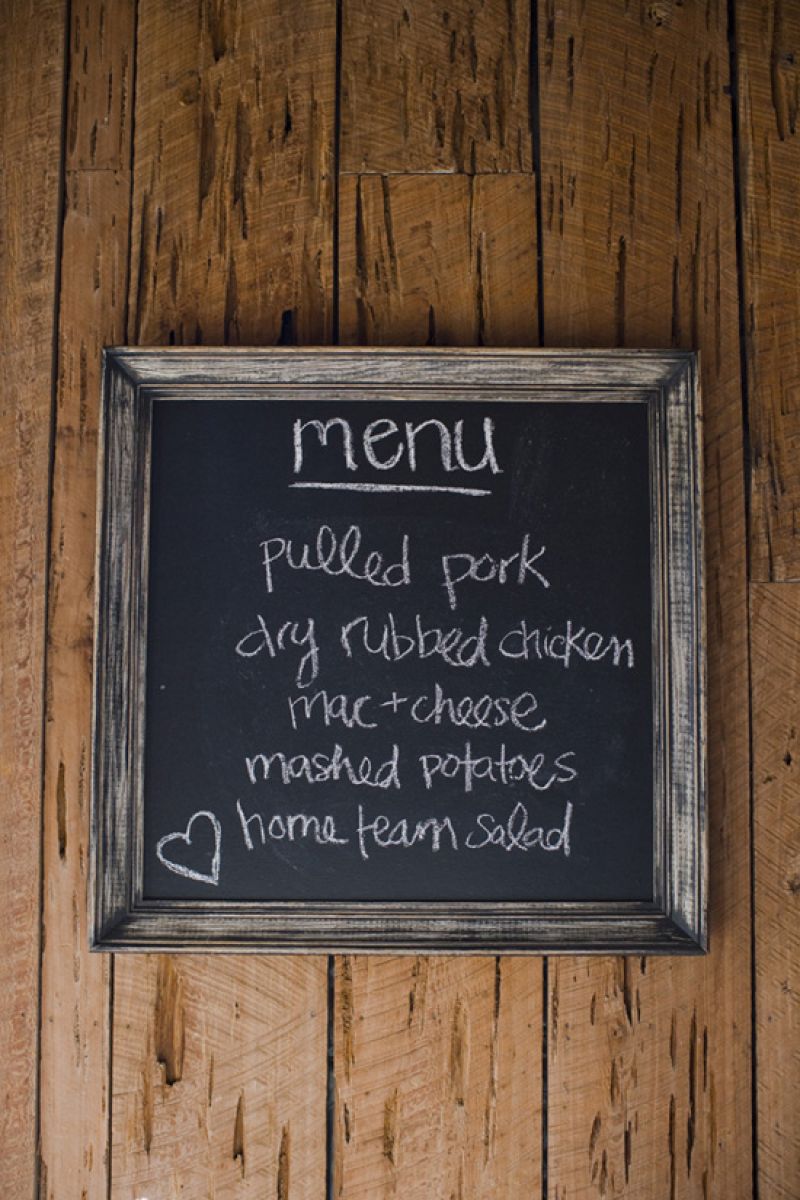 menu
pulled pork
dry rubbed chicken
mac + cheese
mashed potatoes
home team salad